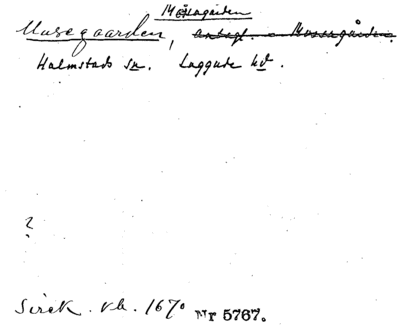 Mösagården
Musegaarden, antagl. = Mossagården.
Halmstads sn. Luggude hd.
?
Sirek. vb. 1670 Nr 5767.